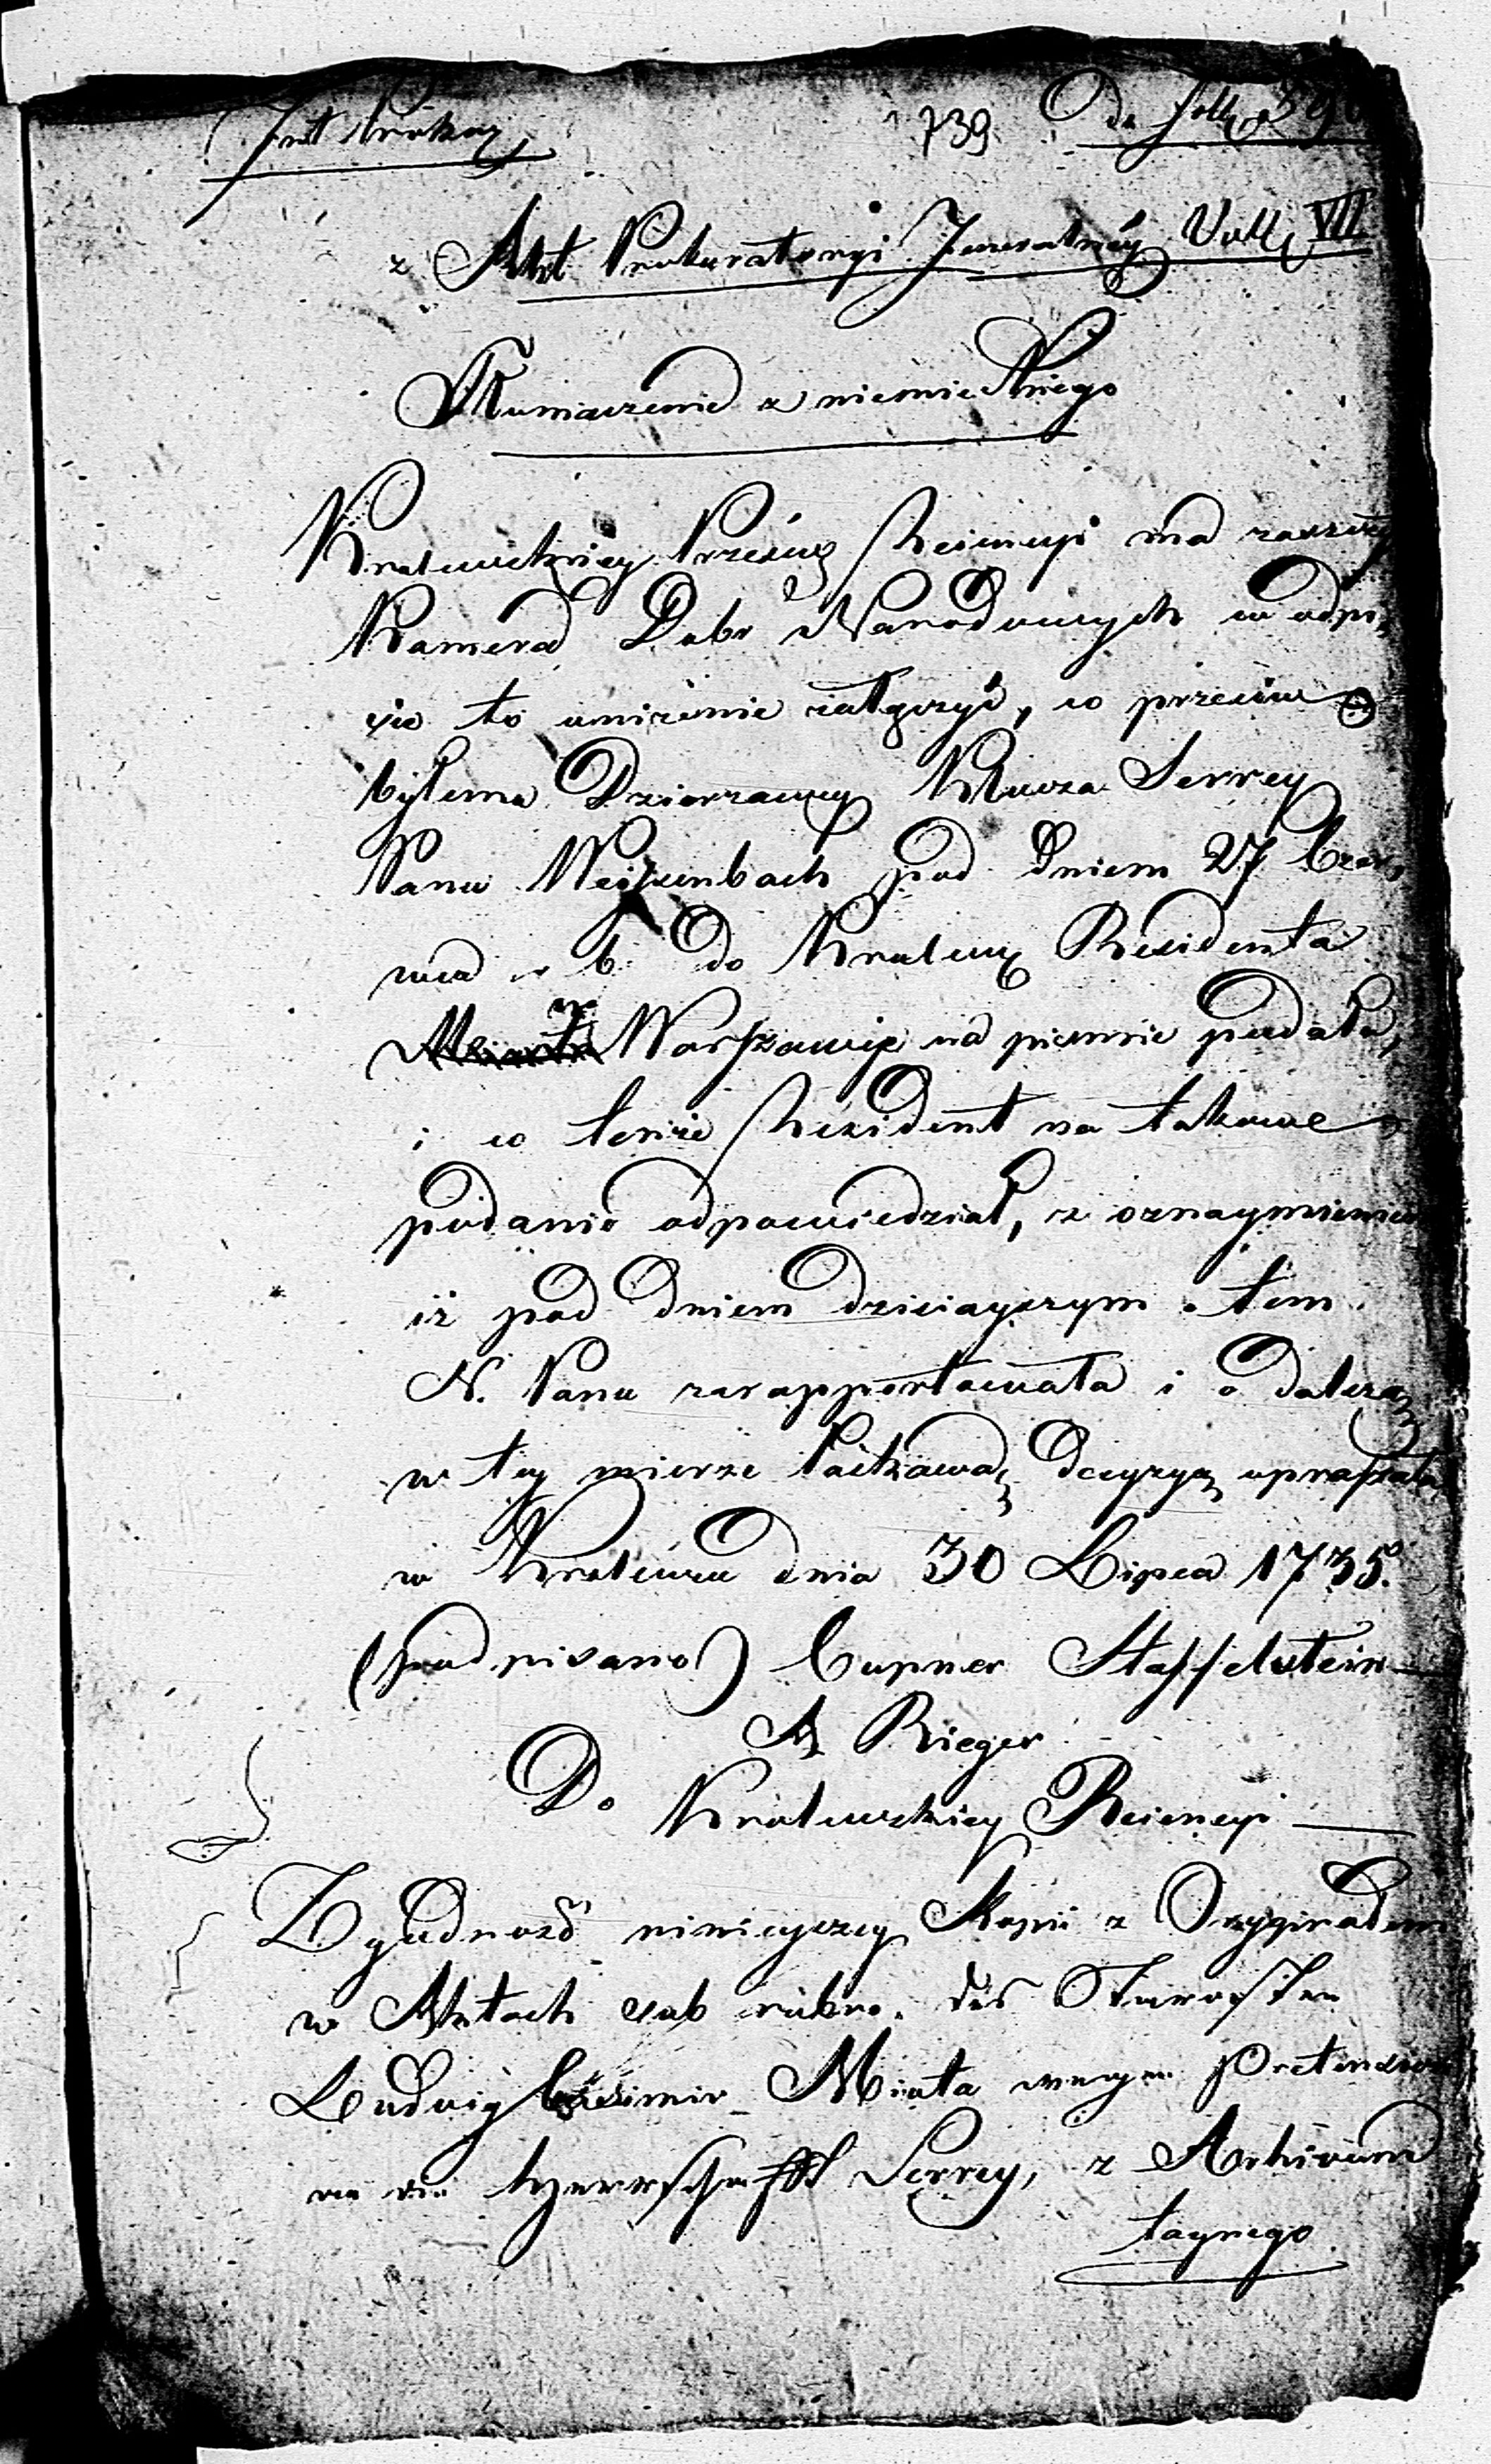 739. Do foll. 390
z Akt Prokuratoryi Jeneralnéy Voll. VII.
Tłumaczenie z niemieckiego
Królewskiey Prześwę Reiencyi ma zaszczyt
Kamera Dobr Narodowych w odpi,
sie to umiżenie załączyć, co przeciw
byłemu Dzierzawcy Klucza Serrey
Panu Weissenbach pod dniem 27 Czer,
wca r b. do Królews Rezidenta
w Warszawie na piśmie podała,
i co tenże Rezident na takowe
podanie odpowiedział, z oznaymieniem
iż pod dniem dzisiayszym o tem
N. Panu zarapportowała i o dalszą
w tey mierze łaskawą decyzyą upraszała
w Królewcu dnia 30 Lipca 1735.
(podpisano) Cupner Staffelstein
A Rieger
Do Królewskiey Reiencyi
Zgodność ninieyszey Kopii z Oryginałem
w Aktach sub rubro. des Starosten
Ludwig Casimir Miata wegen Pretension
an die Herrschafft Serrey, z Archivum
taynego